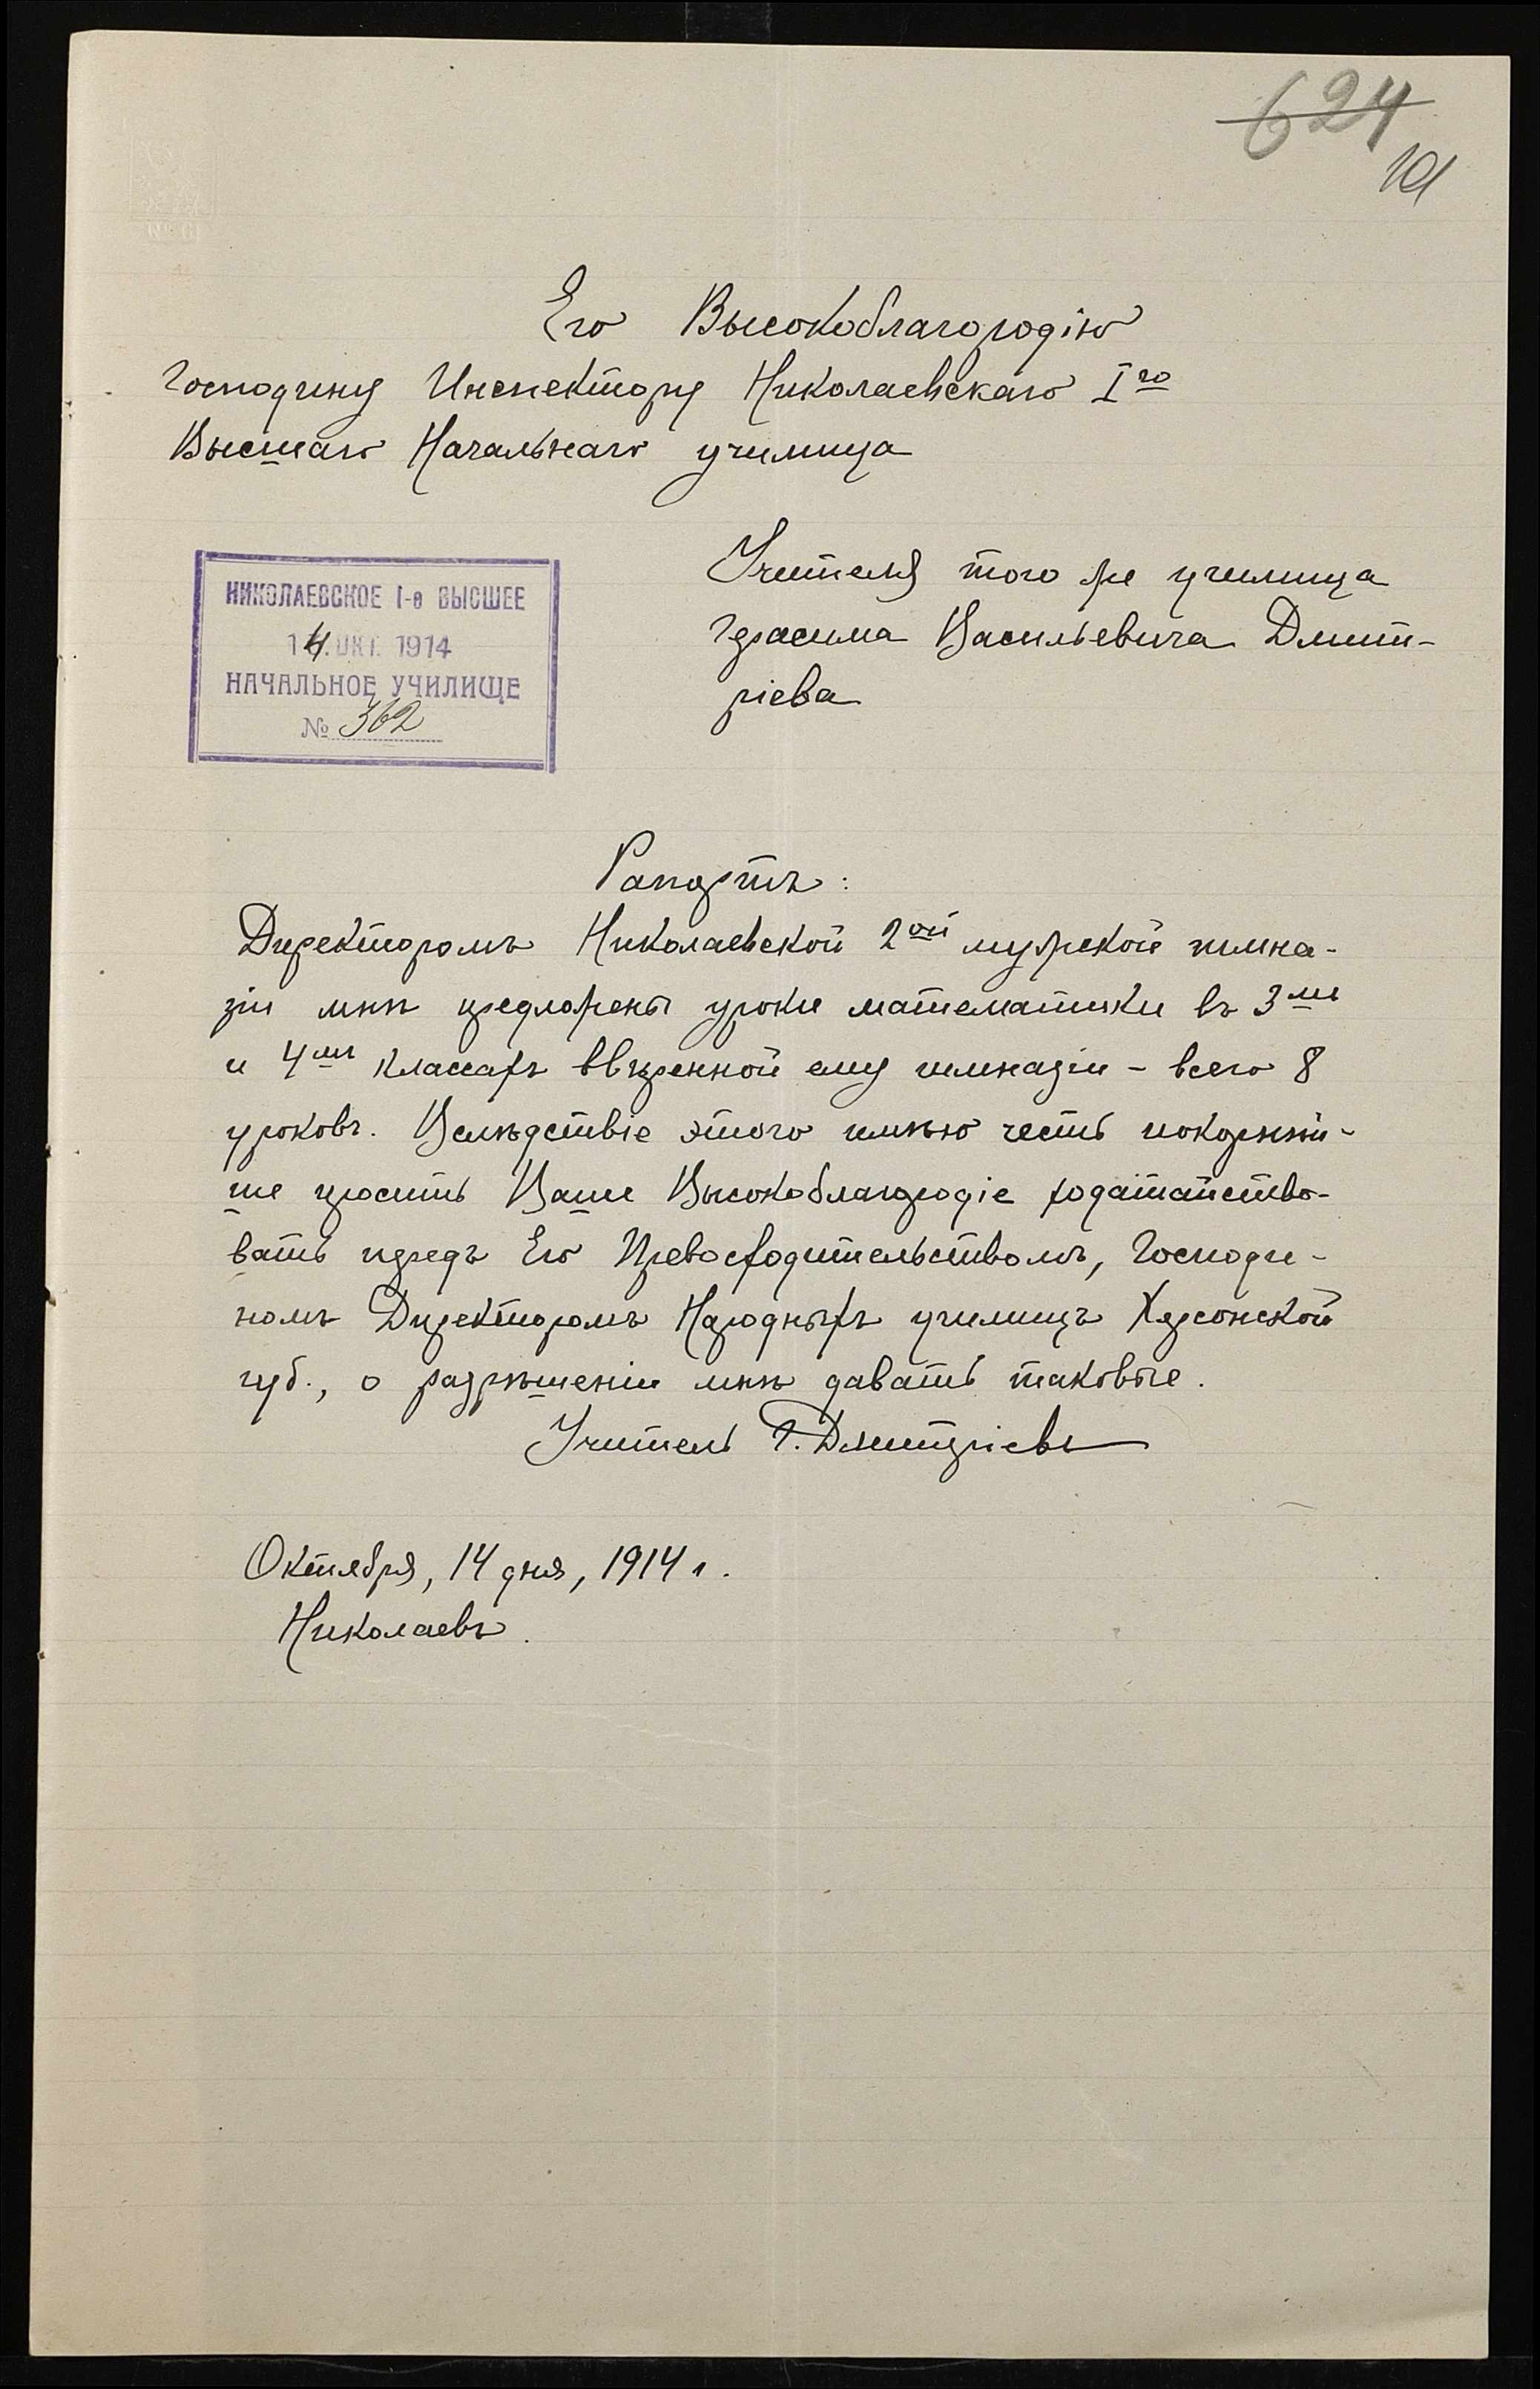 624
101
Его Высокоблагородію
Господину Инспектору Николаевскаго I го
Высшаго Начальнаго училища
Учителя того же училища
Герасима Васильевича Дмит-
ріева
НИКОЛАЕВСКОЕ I-е ВЫСШЕЕ
14.ОКТ. 1914
НАЧАЛЬНОЕ УЧИЛИЩЕ
№ 362
Рапортъ:
Директоромъ Николаевской 2ой мужской гимна-
зіи мнѣ предложены уроки математики въ 3мъ
и 4мъ классахъ ввѣренной ему гимназіи - всего 8
уроковъ. Вслѣдствіе этого имѣю честь покорнѣй-
ше просить Ваше Высокоблагородіе ходатайство-
вать передъ Его Превосходительствомъ, Господи-
номъ Директоромъ Народныхъ училищъ Херсонской
губ., о разрѣшеніи мнѣ давать таковые.
Учитель Г. Дмитріевъ
Октября, 14 дня, 1914 г.
Николаевъ.